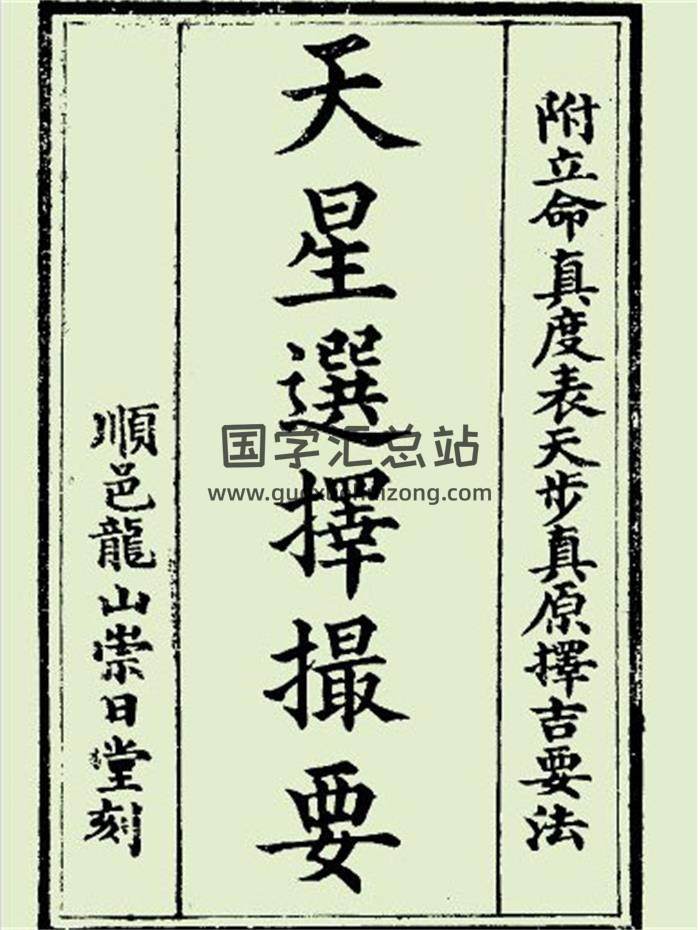 附立命真度表天步真原擇吉要法
天星選擇撮要
順邑龍山崇日堂刻
国学汇总站
www.guoxuehuizong.com